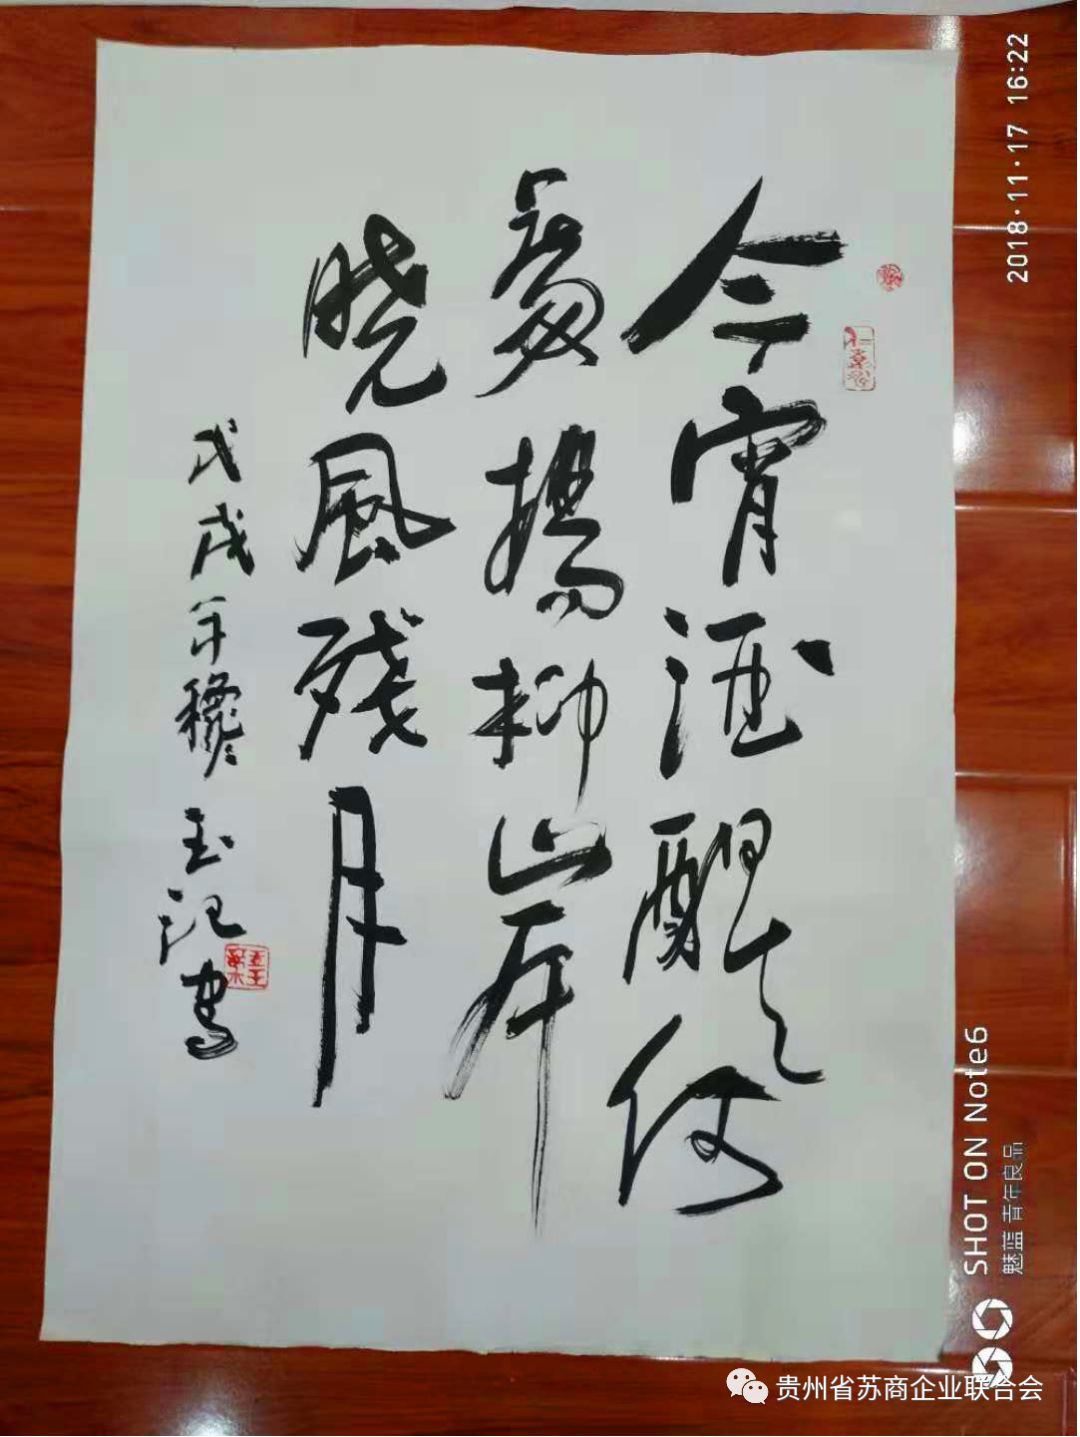 今宵酒醒何
處楊柳岸
曉風殘月
戊戌年穆玉江寫
2018·11·17 16:22
SHOT ON Note6
魅蓝 青年良品
贵州省苏商企业联合会